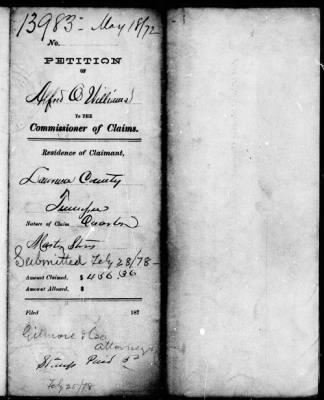 13983 - May 18/72
No.
PETITION
OF
Alfred O Williams
To THE
Commissioner of Claims.
Residence of Claimant,
County
Tennessee
Nature of Claim
Stores
Submitted Feby 28/78-
Amount Claimed, $ 436.36
Amount Allowed, $
Filed 187
Gilmore & Co
Attorneys
Stamps Paid
Feby 25/78